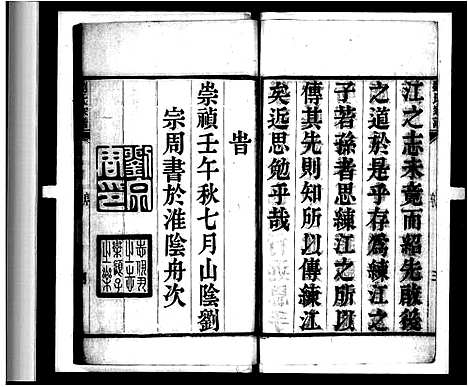 江之志未竟而紹先啟後
之道於是乎存爲練江之
子若孫者思練江之所以
傳其先則知所以傳練江
矣近思勉乎哉
旹
崇禎壬午秋七月山陰劉
宗周書於淮陰舟次